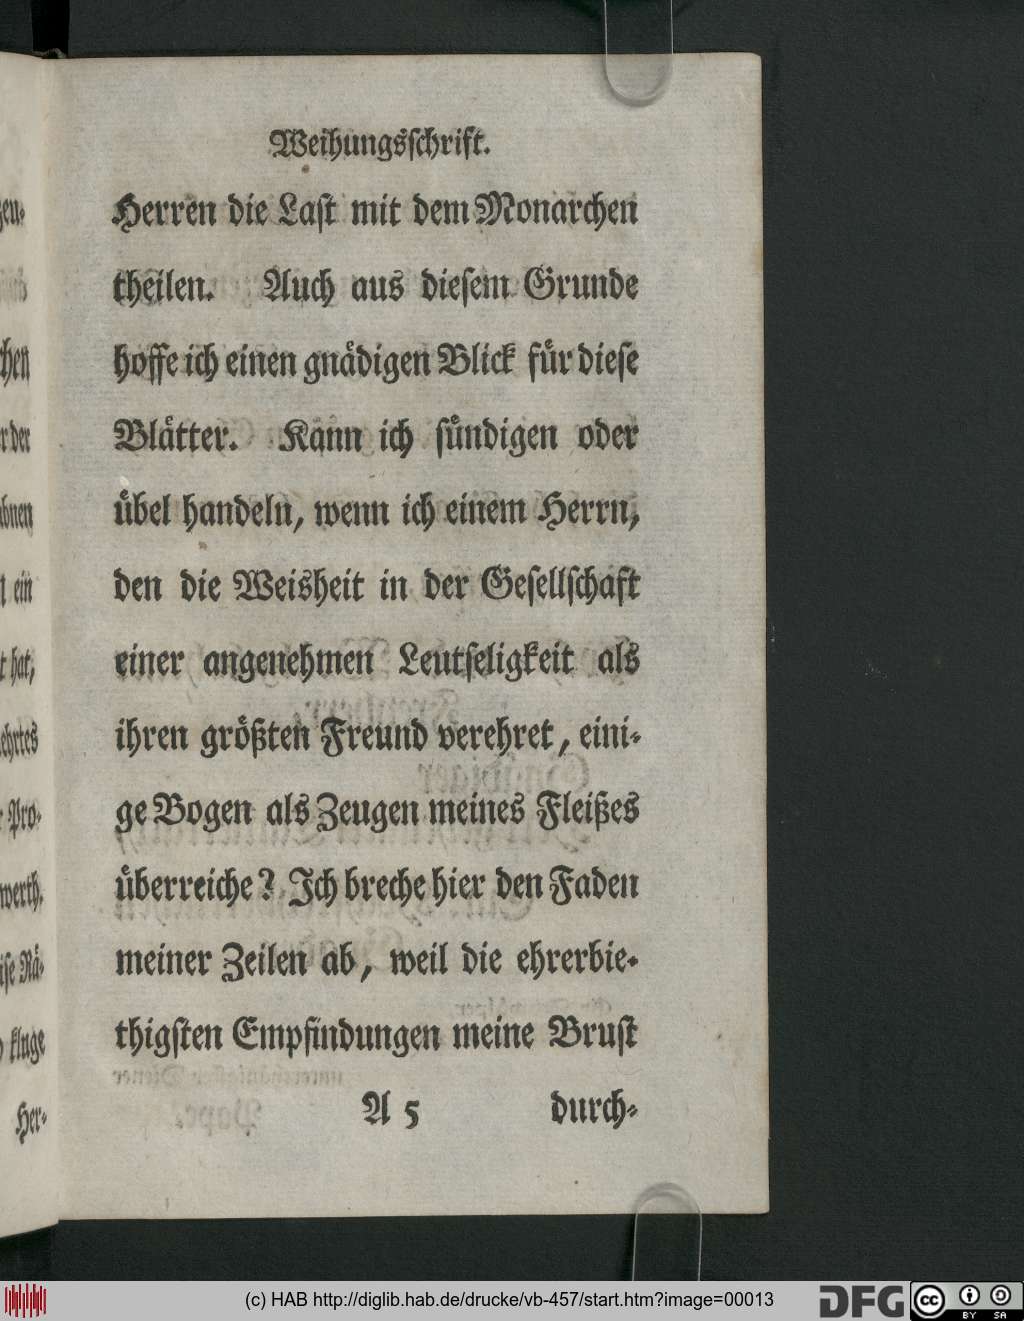 Weihungsschrift.
Herren die Last mit dem Monarchen
theilen. Auch aus diesem Grunde
hoffe ich einen gnädigen Blick für diese
Blätter. Kann ich sündigen oder
übel handeln, wenn ich einem Herrn,
den die Weisheit in der Gesellschaft
einer angenehmen Leutseligkeit als
ihren größten Freund verehret, eini-
ge Bogen als Zeugen meines Fleißes
überreiche? Ich breche hier den Faden
meiner Zeilen ab, weil die ehrerbie-
thigsten Empfindungen meine Brust
A 5 durch-
hen
der
ein
hat,
Pro-
werth.
kluge
Her-
(c) HAB http://diglib.hab.de/drucke/vb-457/start.htm?image=00013
DFG
cc BY SA